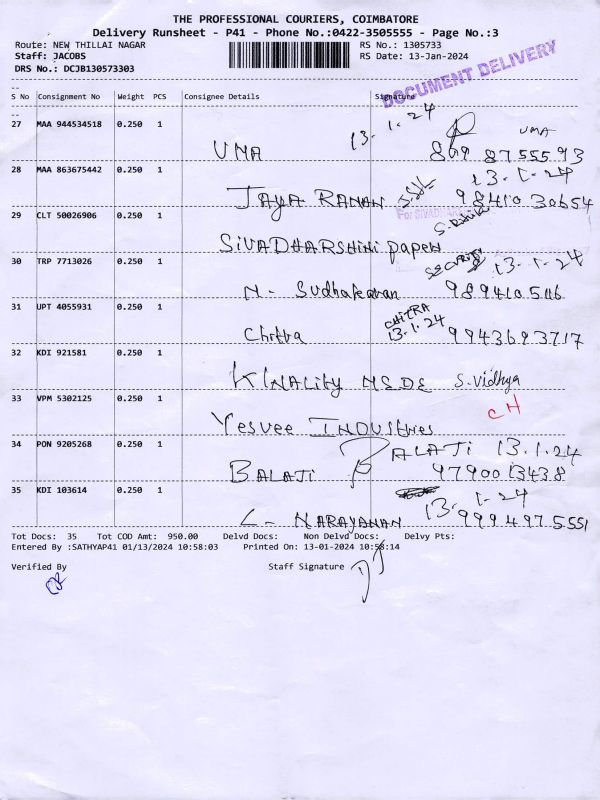 THE PROFESSIONAL COURIERS, COIMBATORE
Delivery Runsheet - P41 - Phone No.:0422-3505555 - Page No.:3
Route: NEW THILLAI NAGAR RS No.: 1305733
Staff: JACOBS RS Date: 13-Jan-2024
DRS No.: DCJB130573303
DOCUMENT DELIVERY
S No Consignment No Weight PCS Consignee Details Signature
27 MAA 944534518 0.250 1
13.1.24 UMA
UMA 869 8755593
28 MAA 863675442 0.250 1
13.1.24
JAYA RAMAN 98410 30654
29 CLT 50026906 0.250 1
SIVADHARSHINI papers
30 TRP 7713026 0.250 1
SECURITY 13.1.24
N- Sudhakaran
31 UPT 4055931 0.250 1
CHITRA
13.1.24
Chitra 9943693717
32 KDI 921581 0.250 1
S.Vidhya
33 VPM 5302125 0.250 1
CH
Yesvee INDUStries
34 PON 9205268 0.250 1
BALATJI 13.1.24
BALAJI 9790013438
35 KDI 103614 0.250 1
13.1-24
L- NARAYANAN 9994975551
Tot Docs: 35 Tot COD Amt: 950.00 Delvd Docs: Non Delvd Docs: Delvy Pts:
Entered By :SATHYAP41 01/13/2024 10:58:03 Printed On: 13-01-2024 10:58:14
Verified By Staff Signature